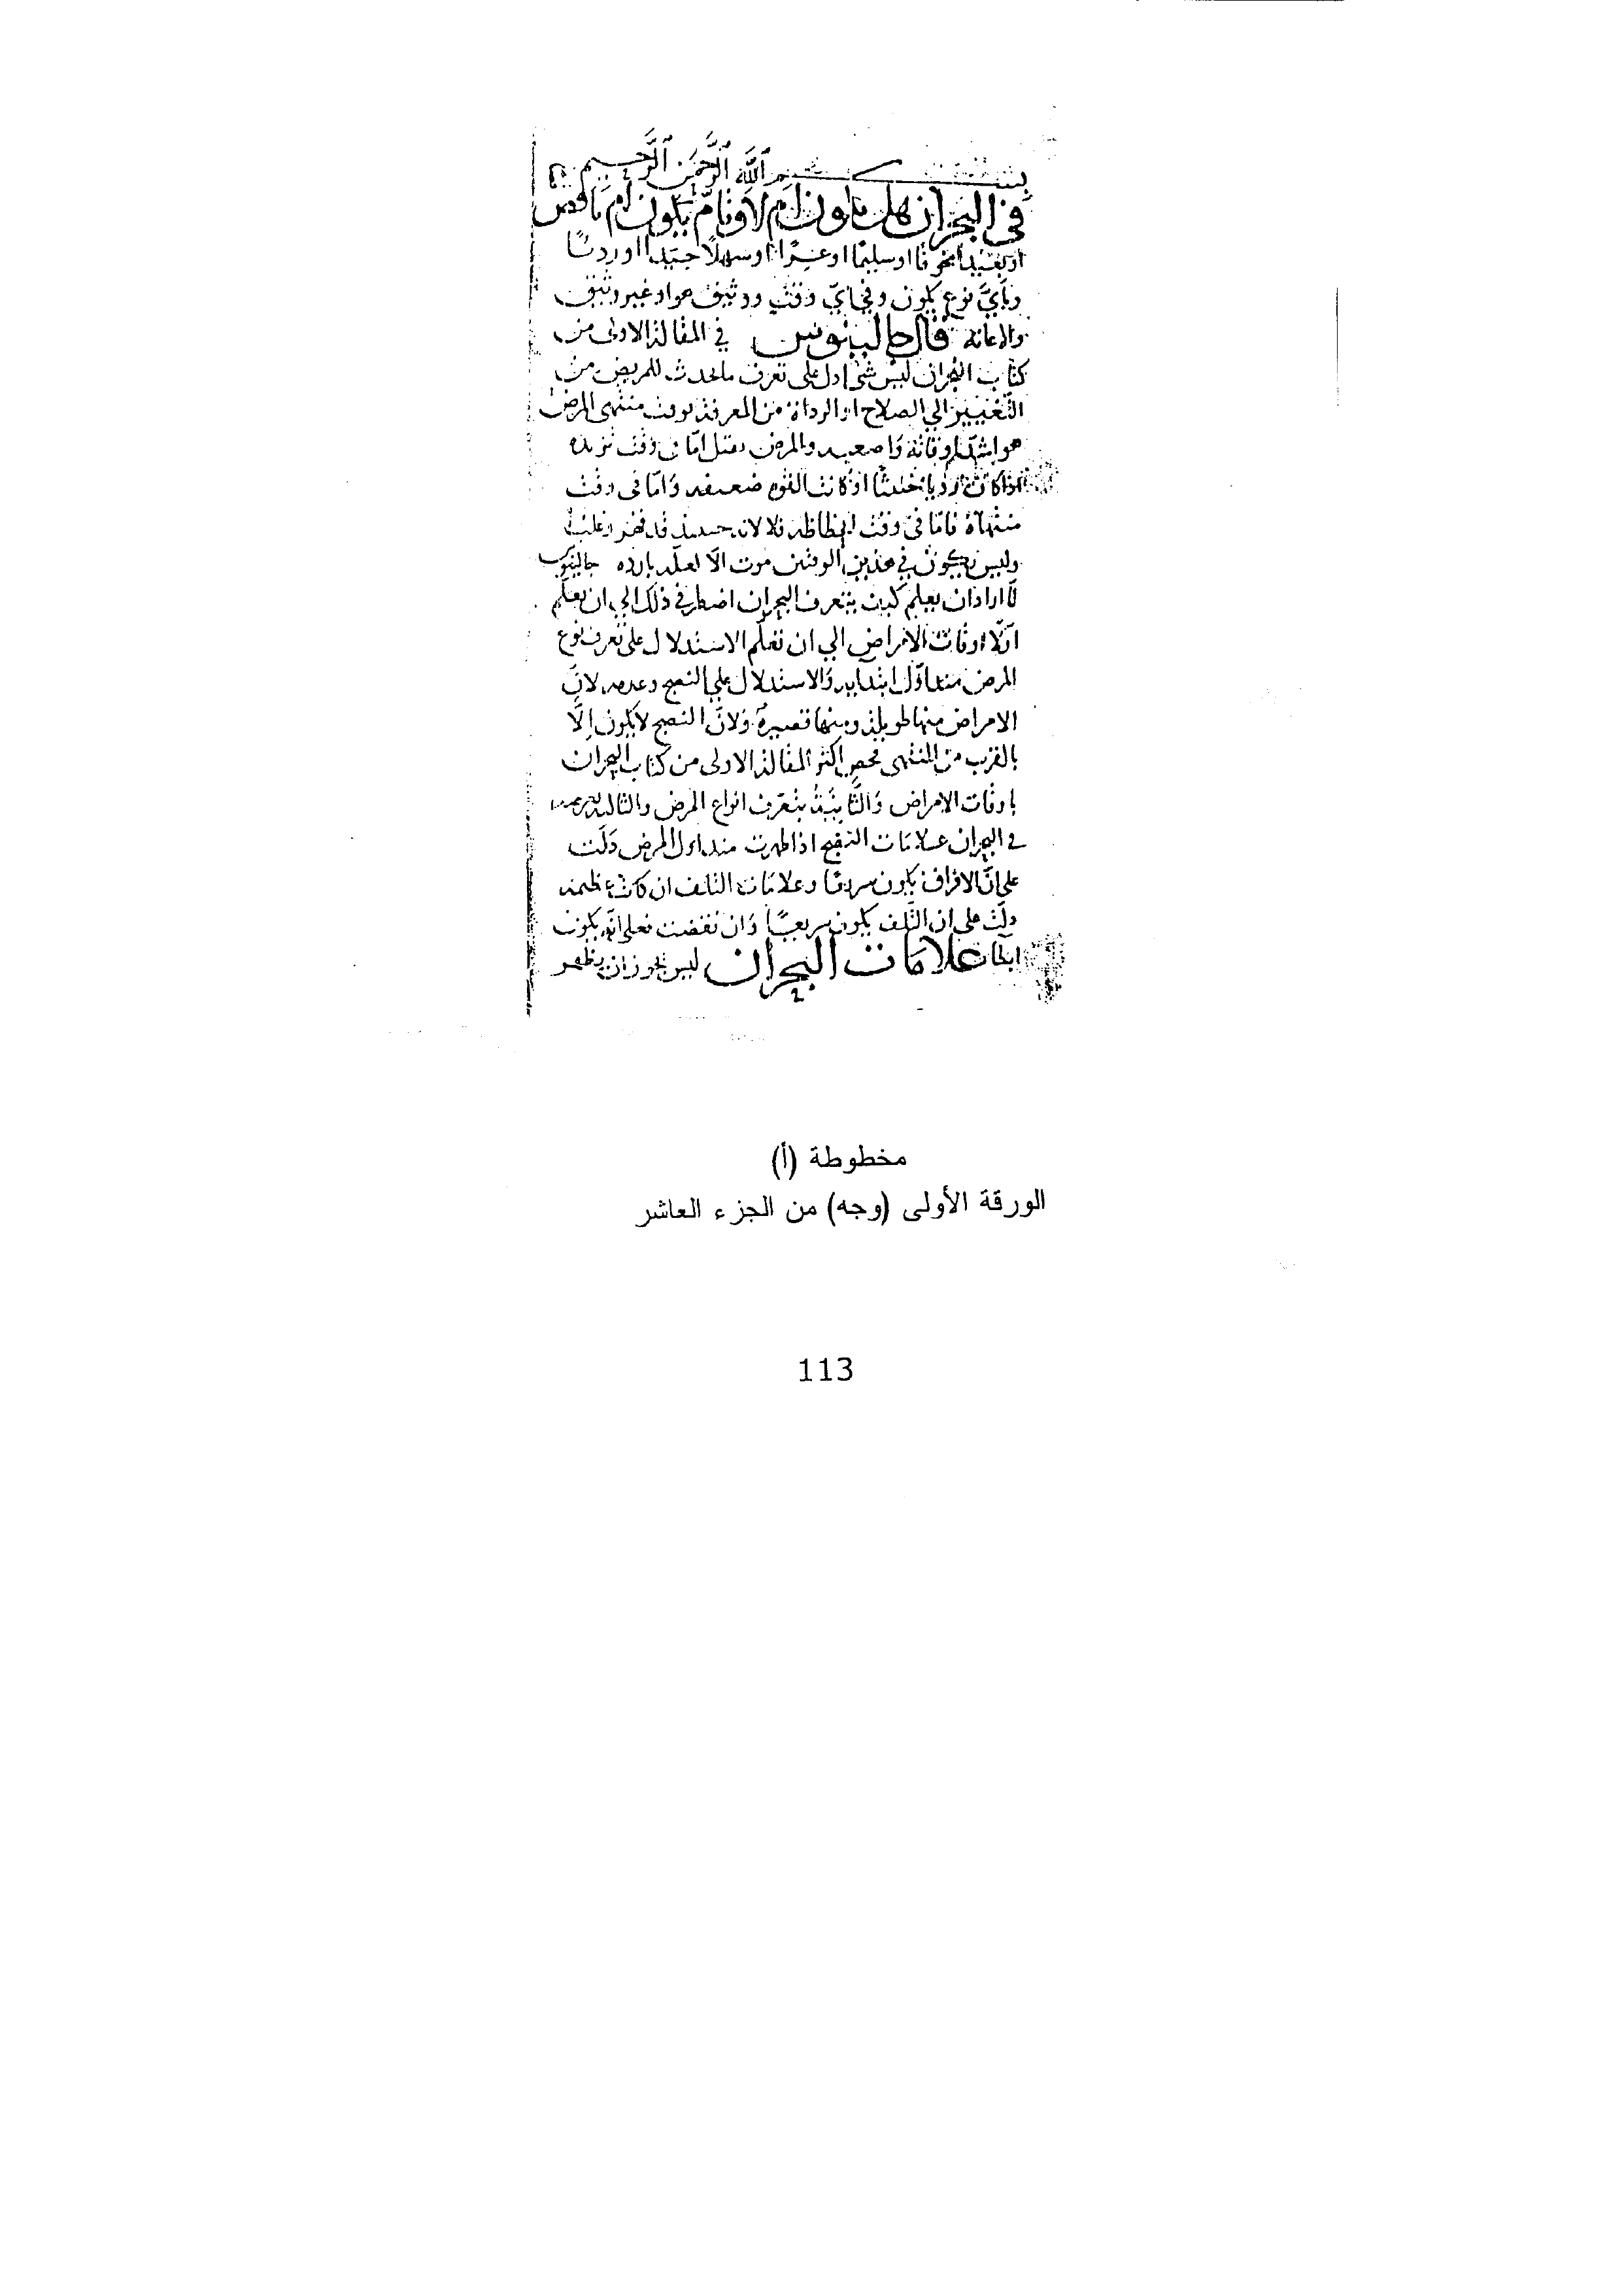 بسم الله الرحمن الرحيم
في البحران هل يكون ام لا وتام يكون ام ناقص
او بعيدا مخوفا او سليما او عسرا او سهلا جيدا او رديا
وبأي نوع يكون وفي اي وقت ووثيق هو او غير وثيق
قال جالينوس في المقالة الاولى من
كتاب البحران ليس شي ادل على تعرف ما يحدث للمريض من
التغيير الي الصلاح او الرداة من المعرفة بوقت منتهى المرض
هو اشد اوقاته واصعبه والمرض يقتل اما في وقت تزيده
اذا كان خبيثا او كانت القوه ضعيفه واما في وقت
منتهاه فاما في وقت انحطاطه فلا لانه حينيذ قد قهر وغلب
وليس يكون في هذين الوقتين موت الا لعله بارده جالينوس
لما اراد ان يعلم كيف يتعرف البحران اضطر في ذلك الي ان يعلم
اولا اوقات الامراض الي ان تعلم الاستدلال على تعرف نوع
المرض منذ اول ابتدايه والاستدلال علي النضج وعدمه لان
الامراض منها طويلة ومنها قصيرة ولان النضج لا يكون الا
بالقرب من المنتهى فخص اكثر المقالة الاولى من كتاب البحران
باوقات الامراض والثانية بتعرف انواع المرض والثالثة
في البحران علامات النضج اذا ظهرت منذ اول المرض دلت
على ان الافراق يكون سريعا وعلامات التلف ان كانت عظيمه
دلت على ان التلف يكون سريعا وان نقضت فعلى انه يكون
ابطا علامات البحران ليس يجوز ان يظهر
مخطوطة (أ)
الورقة الأولى (وجه) من الجزء العاشر
113